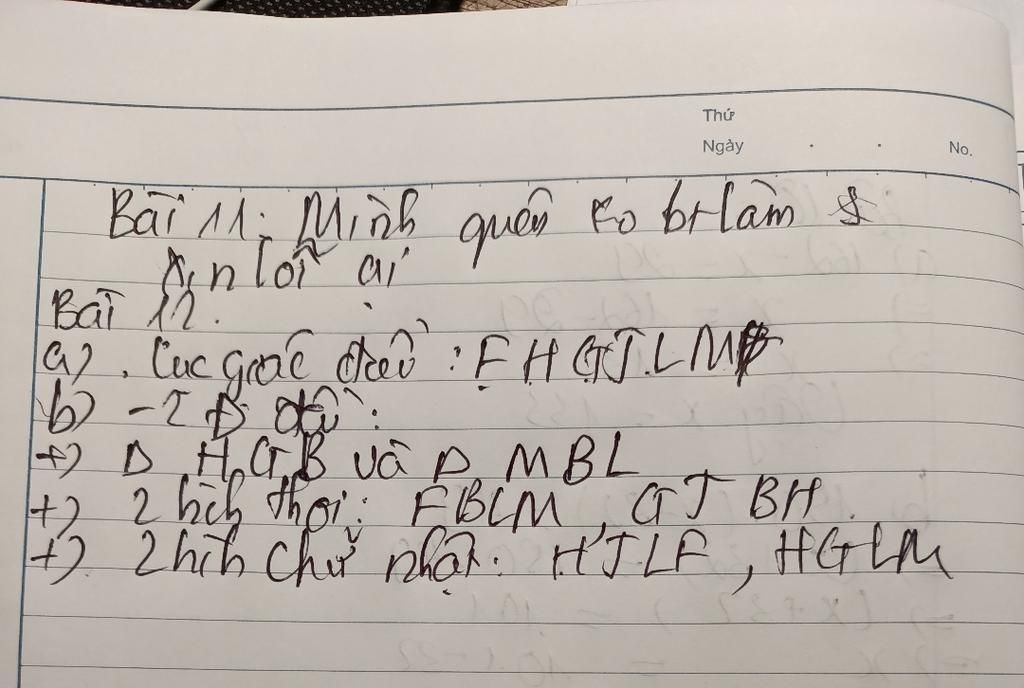 Thứ
Ngày . . No.
Bài 11: Mình quên ko bt làm
xin lỗi ạ
Bài 12.
a). Lục giác đều : F H G J L M
b) - 2 Δ đều :
+) Δ H G B và Δ M B L
+) 2 hìch thoi: FBLM, GJBH.
+) 2 hìh chữ nhật: HJLF, HGLM